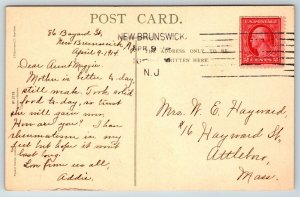 POST CARD.
56 Bayard St.
New Brunswick, N.J.
April 9-1914
NEW BRUNSWICK,
APR 9
N.J.
ADDRESS ONLY TO BE
WRITTEN HERE.
2 CENTS 2
Dear Aunt Maggie
Mother is better to-day,
still weak. Took solid
food to-day, so trust
she will gain now.
How are you? I have
rheumatism in my
feet but hope it won't
last long.
Love from us all,
Addie.
Mrs. W. E. Hayward,
#16 Hayward St,
Attleboro,
Mass.